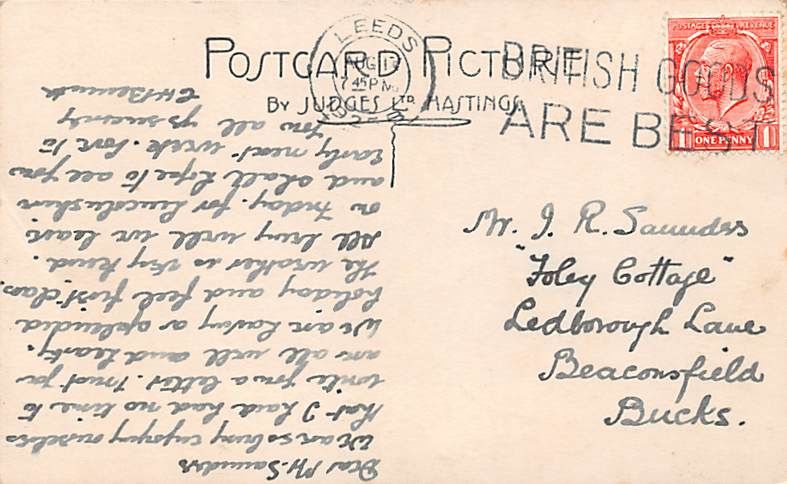 POSTCARD PICTURE
BY JUDGES LTD HASTINGS
LEEDS
AUG
45PM
BRITISH GOODS
ARE BEST
POSTAGE REVENUE
ONE PENNY
1 1
Mr. J. R. Saunders
"Foley Cottage"
Ledborough Lane
Beaconsfield
Bucks.
Dear Mr. Saunders
We are so busy enjoying ourselves
that I had no time to
write you a letter. Trust you
are all well and hearty.
We are having a splendid
holiday and feel first class.
The weather is very kind.
All being well we leave
on Friday. for Lincolnshire
and shall hope to see you
early next week. Love to
you all yrs sincerely